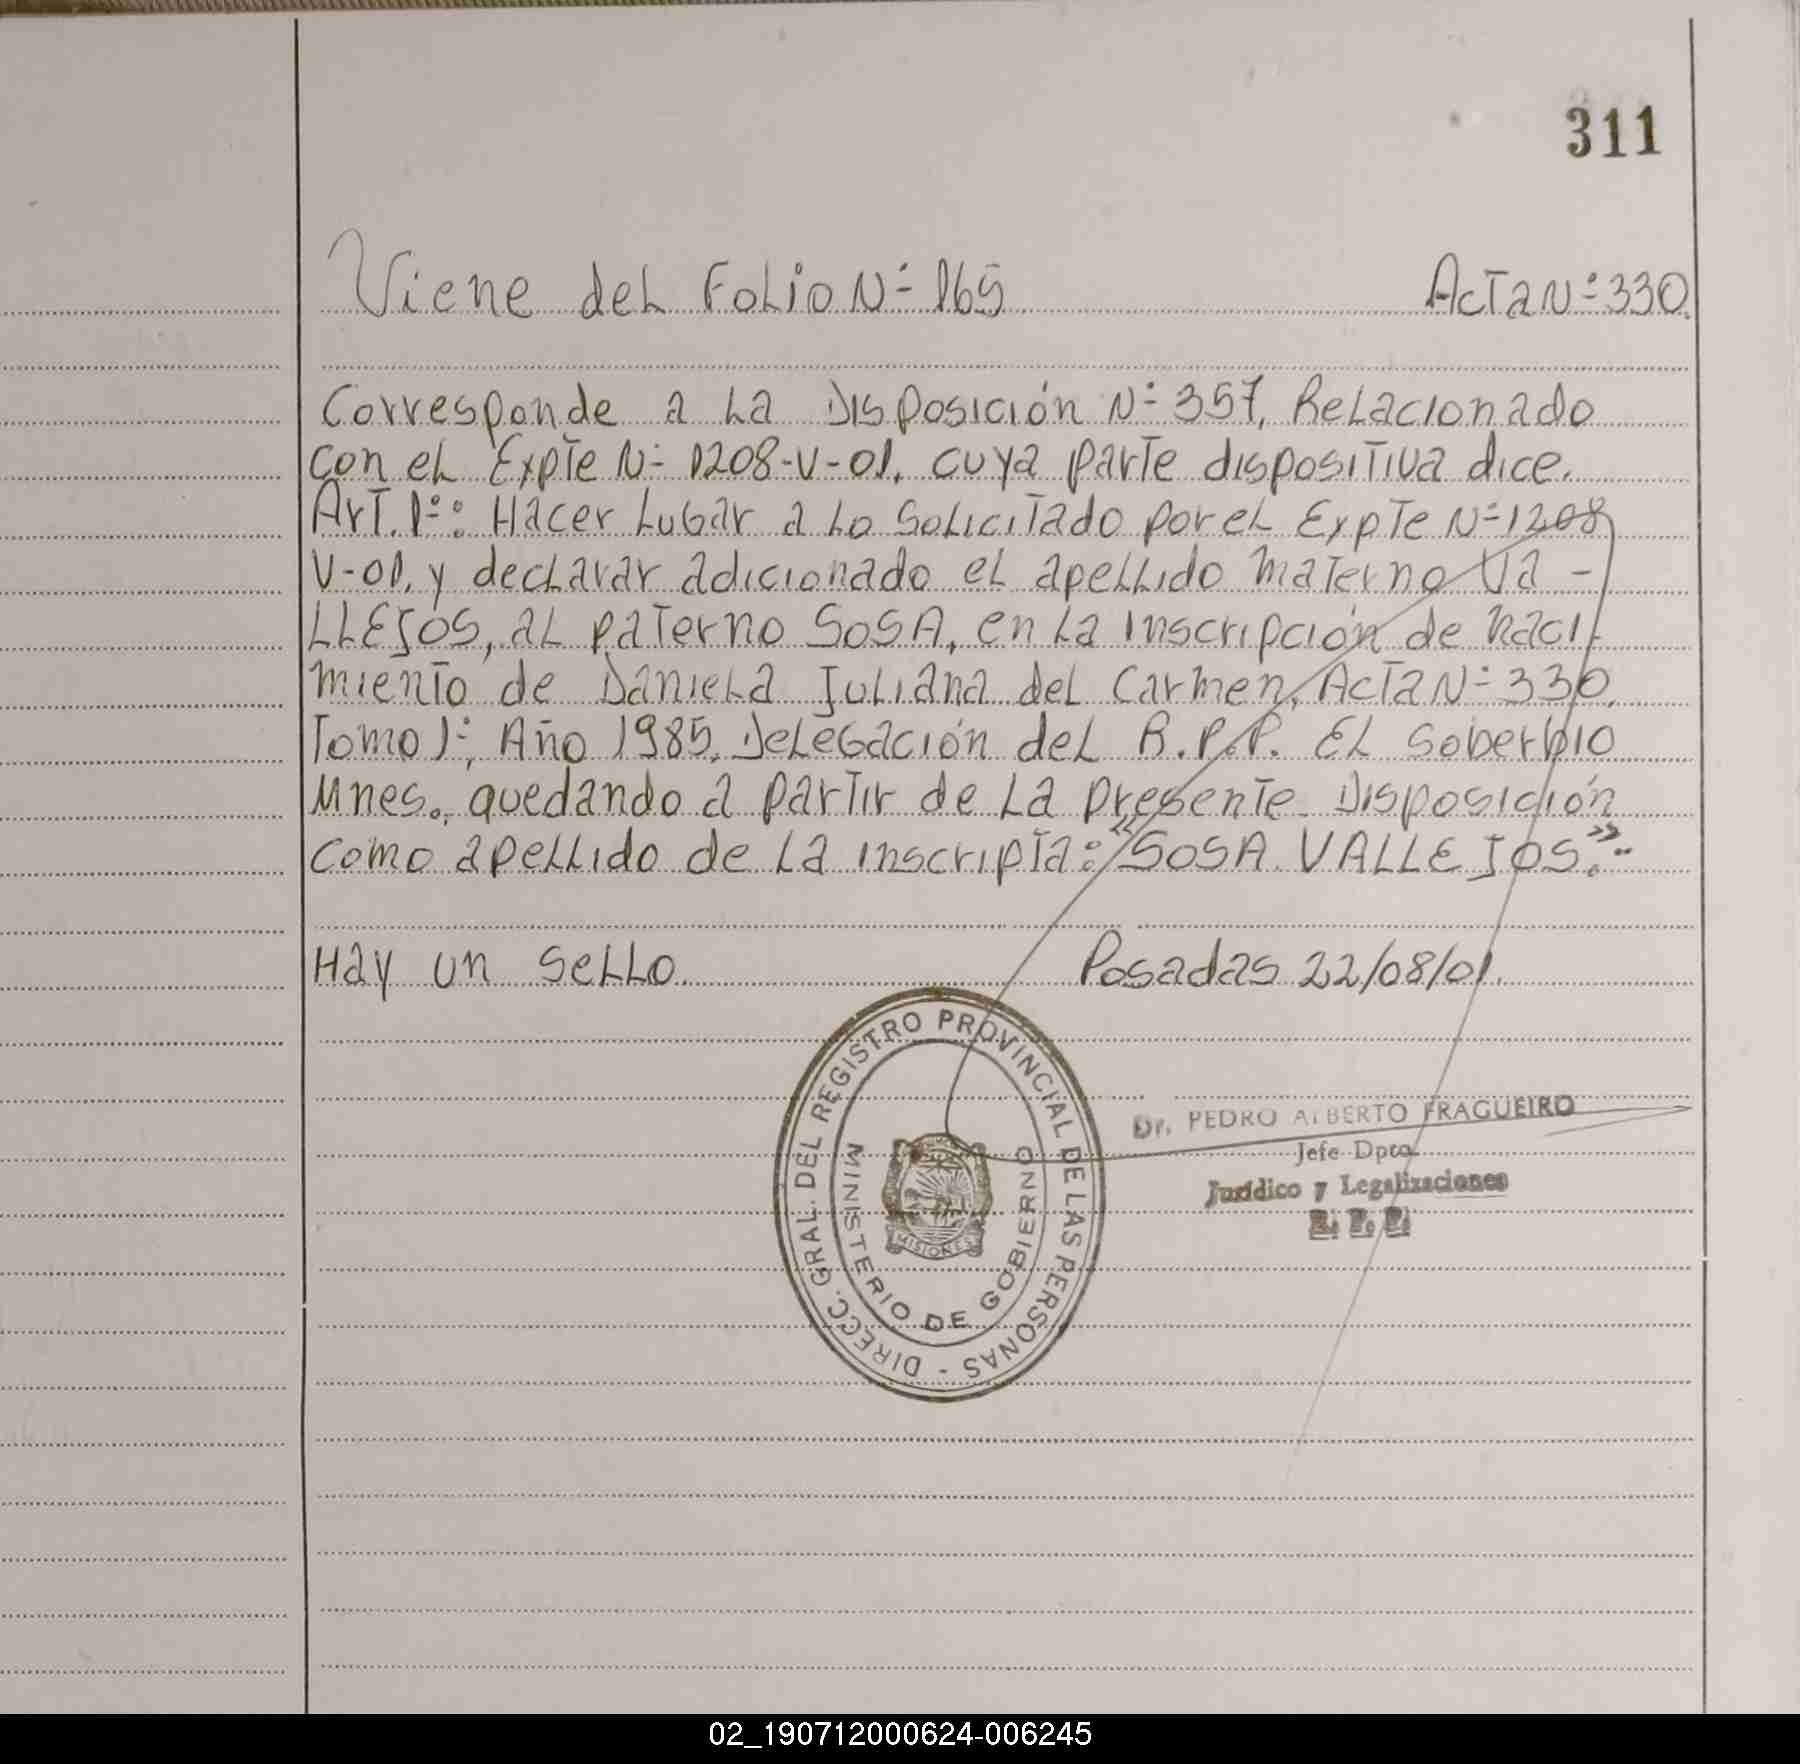 311
Viene del Folio N:- 165 Acta N:- 330.
Corresponde a La Disposición N:- 357, Relacionado
con el Expte N:- 1208-V-01, cuya parte dispositiva dice.
Art. 1:-: Hacer Lugar a Lo Solicitado por el Expte N:- 1208
V-01, y declarar adicionado el apellido materno Va -
LLEJOS, al paterno SOSA, en La inscripción de naci-
miento de Daniela Juliana del Carmen, Acta N:- 330,
Tomo 1:, Año 1985, Delegación del R.P.P. El Soberbio
Mnes., quedando a partir de La presente Disposición
como apellido de La inscripta: "SOSA VALLEJOS".-
Hay un sello. Posadas 22/08/01.
DIRECC. GRAL. DEL REGISTRO PROVINCIAL DE LAS PERSONAS -
MINISTERIO DE GOBIERNO
MISIONES
Dr. PEDRO ALBERTO FRAGUEIRO
Jefe Dpto.
Jurídico y Legalizaciones
R. P. P.
02_190712000624-006245